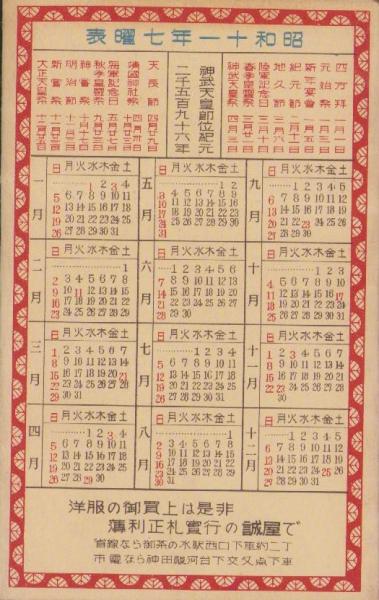 昭和十一年七曜表
四方拝 一月一日
元始祭 一月三日
新年宴會 一月五日
紀元節 二月十一日
地久節 三月六日
陸軍記念日 三月十日
春季皇靈祭 三月廿一日
神武天皇祭 四月三日
神武天皇即位紀元
二千五百九十六年
天長節 四月廿九日
靖國神社祭 四月三十日
海軍記念日 五月廿七日
秋季皇靈祭 九月廿三日
神嘗祭 十月十七日
明治節 十一月三日
新嘗祭 十一月廿三日
大正天皇祭 十二月廿五日
一月
日月火水木金土
1 2 3 4
5 6 7 8 9 10 11
12 13 14 15 16 17 18
19 20 21 22 23 24 25
26 27 28 29 30 31
二月
日月火水木金土
1
2 3 4 5 6 7 8
9 10 11 12 13 14 15
16 17 18 19 20 21 22
23 24 25 26 27 28 29
三月
日月火水木金土
1 2 3 4 5 6 7
8 9 10 11 12 13 14
15 16 17 18 19 20 21
22 23 24 25 26 27 28
29 30 31
四月
日月火水木金土
1 2 3 4
5 6 7 8 9 10 11
12 13 14 15 16 17 18
19 20 21 22 23 24 25
26 27 28 29 30
五月
日月火水木金土
1 2
3 4 5 6 7 8 9
10 11 12 13 14 15 16
17 18 19 20 21 22 23
24 25 26 27 28 29 30
31
六月
日月火水木金土
1 2 3 4 5 6
7 8 9 10 11 12 13
14 15 16 17 18 19 20
21 22 23 24 25 26 27
28 29 30
七月
日月火水木金土
1 2 3 4
5 6 7 8 9 10 11
12 13 14 15 16 17 18
19 20 21 22 23 24 25
26 27 28 29 30 31
八月
日月火水木金土
1
2 3 4 5 6 7 8
9 10 11 12 13 14 15
16 17 18 19 20 21 22
23 24 25 26 27 28 29
30 31
九月
日月火水木金土
1 2 3 4 5
6 7 8 9 10 11 12
13 14 15 16 17 18 19
20 21 22 23 24 25 26
27 28 29 30
十月
日月火水木金土
1 2 3
4 5 6 7 8 9 10
11 12 13 14 15 16 17
18 19 20 21 22 23 24
25 26 27 28 29 30 31
十一月
日月火水木金土
1 2 3 4 5 6 7
8 9 10 11 12 13 14
15 16 17 18 19 20 21
22 23 24 25 26 27 28
29 30
十二月
日月火水木金土
1 2 3 4 5
6 7 8 9 10 11 12
13 14 15 16 17 18 19
20 21 22 23 24 25 26
27 28 29 30 31
洋服の御買上は是非
薄利正札實行の誠屋で
省線なら御茶の水駅西口下車約二丁
市電なら神田駿河台下交叉点下車